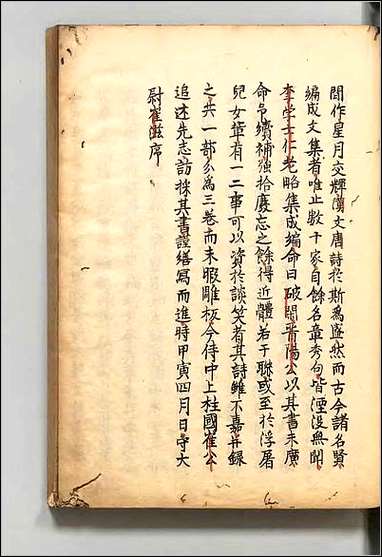 間作星月交輝漢文唐詩於斯為盛然而古今諸名賢
編成文集者唯止數十家自餘名章秀句皆湮没無聞
李學士仁老略集成編命曰破閑晋陽公以其書未廣
命予續補强拾廢忘之餘得近體若干聯或至於浮屠
兒女輩有一二事可以資於談笑者其詩雖不嘉并録
之共一部分為三卷而未暇雕板今侍中上柱國崔公
追述先志訪採其書謹繕寫而進時甲寅四月日守大
尉崔滋序